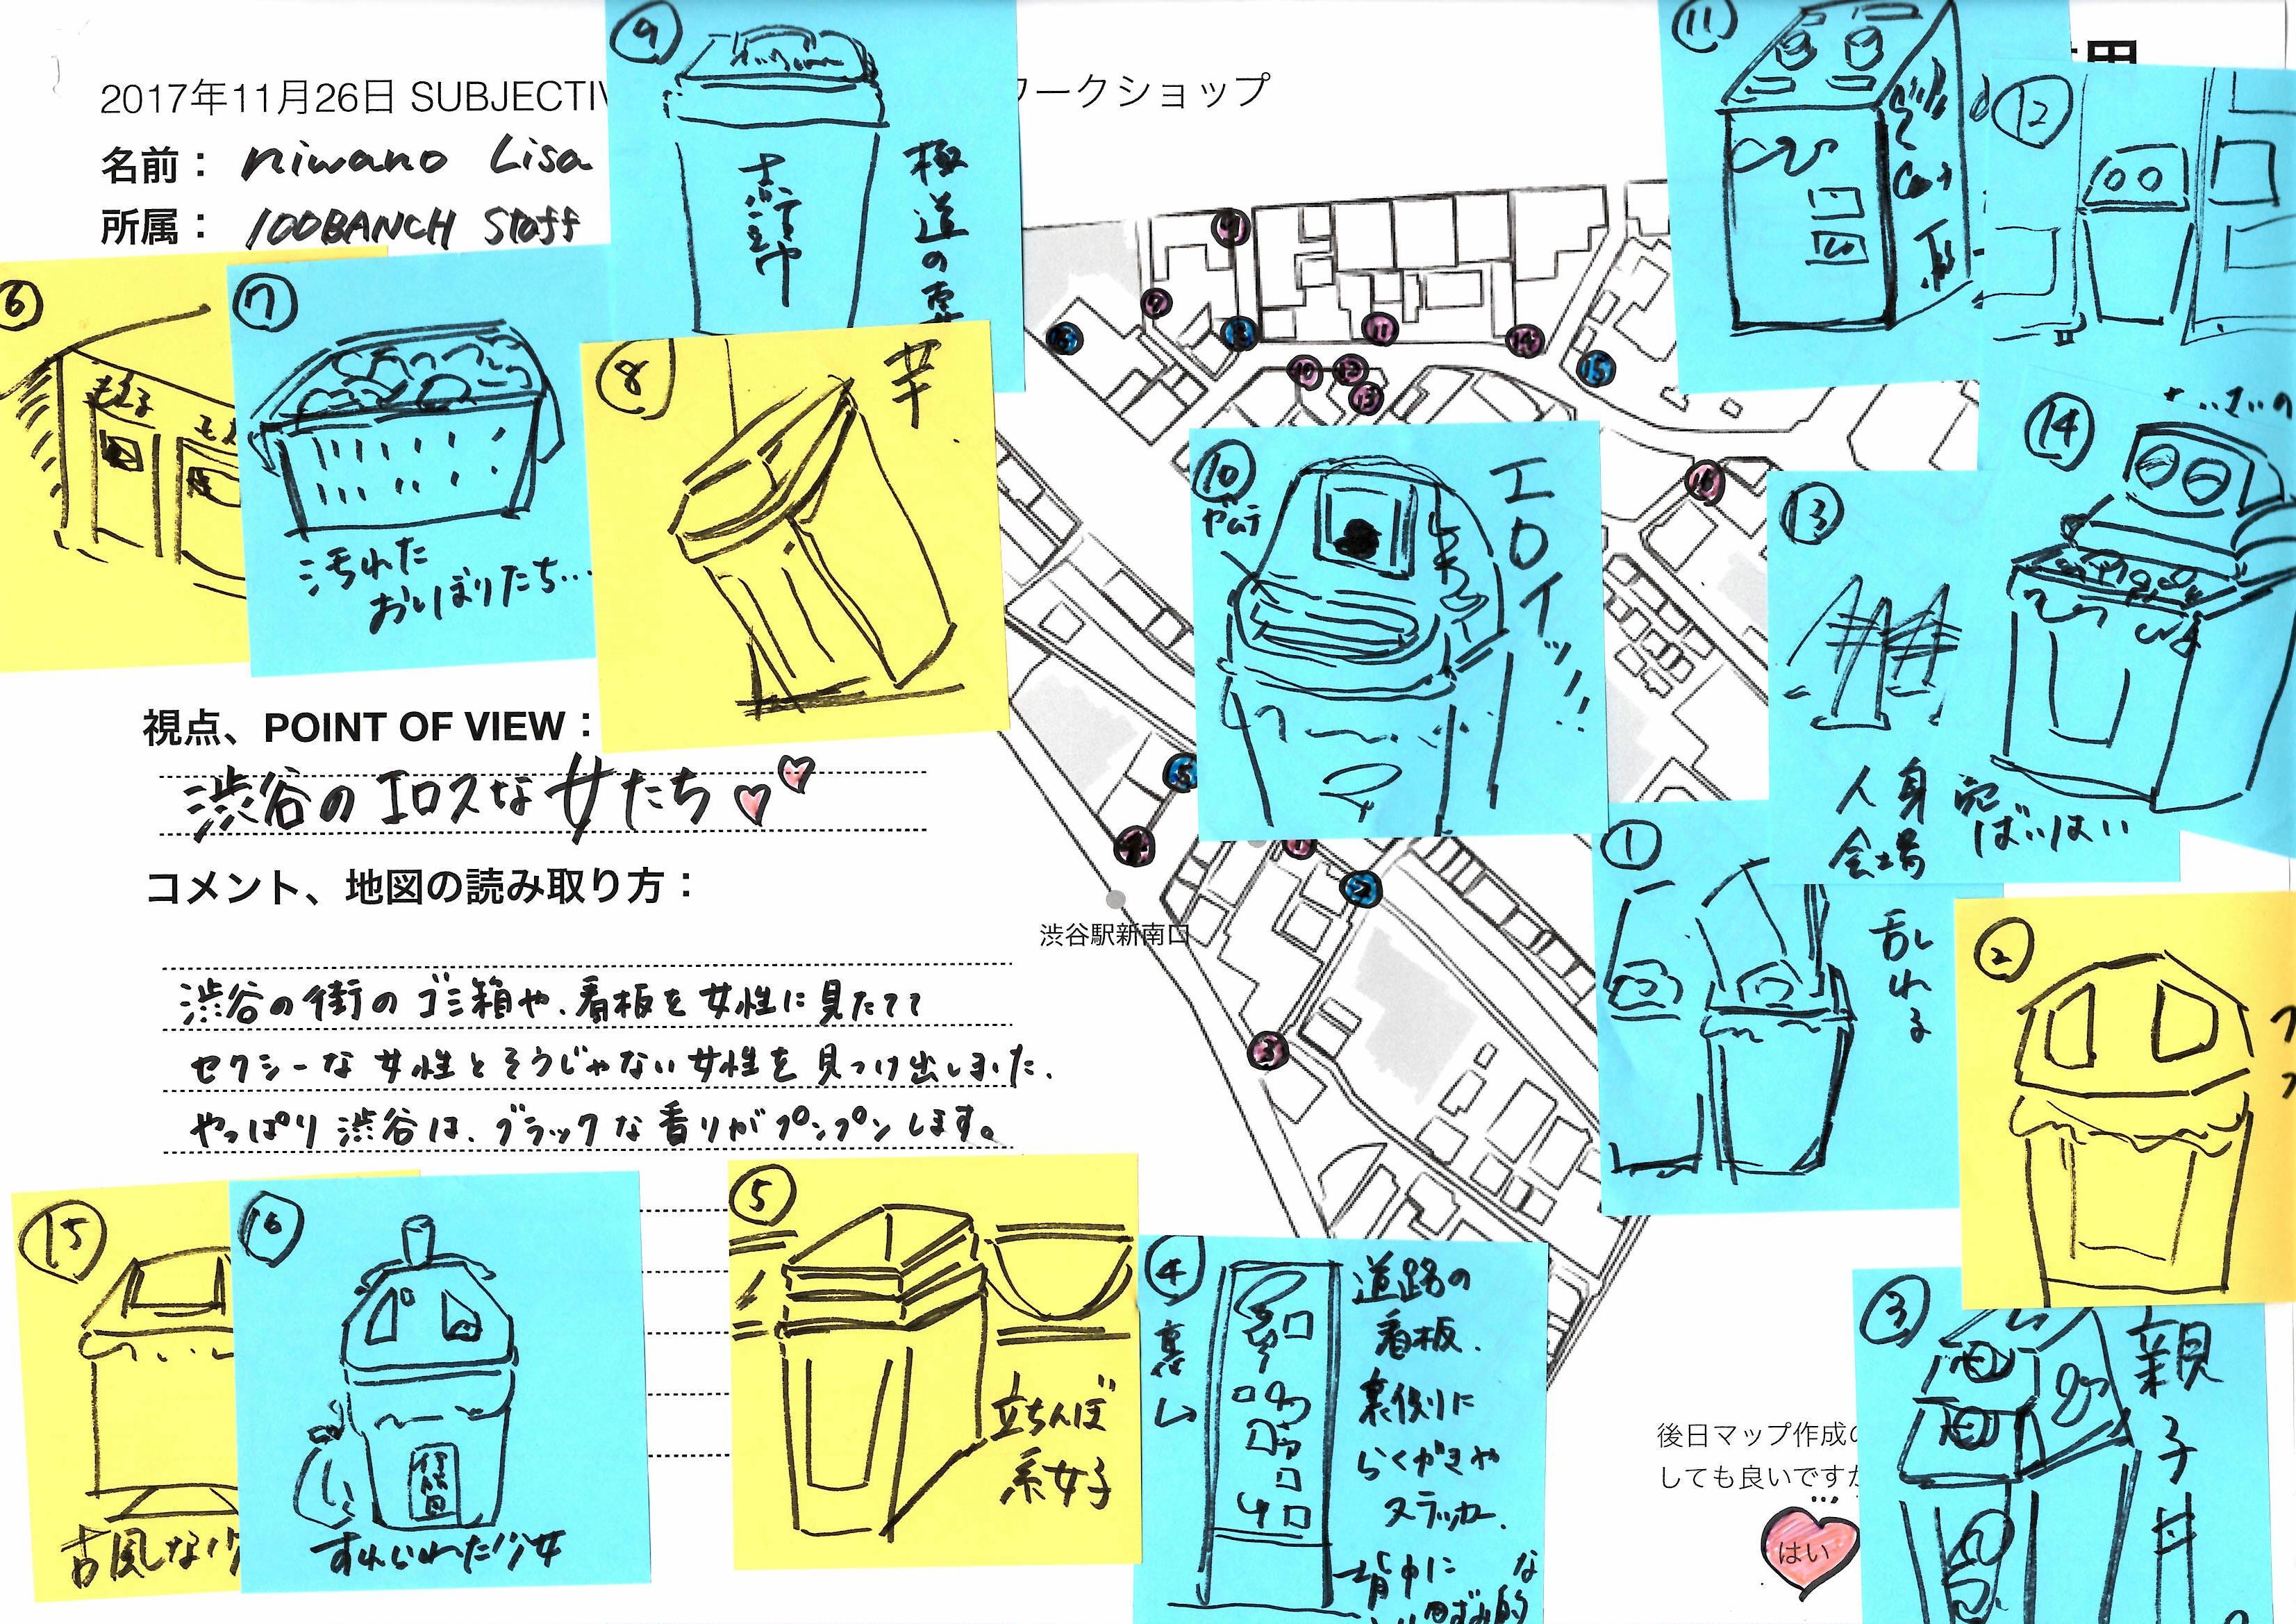 2017年11月26日 SUBJECTIV
ワークショップ
名前： niwano Lisa
所属： 100BANCH Staff
⑨
極道の
⑪
⑫
⑥
もえる
⑦
汚れた
おしぼりたち…
⑧
芋
⑩
ガムテ
エロイッ!!
⑬
人身売ばいばい
会場
⑭
視点、POINT OF VIEW：
渋谷のエロスな女たち♡♡
コメント、地図の読み取り方：
渋谷の街のゴミ箱や、看板を女性に見たてて
セクシーな女性とそうじゃない女性を見つけ出しました.
やっぱり渋谷は、ブラックな香りがプンプンします。
渋谷駅新南口
①
乱れる
②
③
親子丼
④
裏ム
道路の
看板.
裏側に
らくがきや
ステッカー.
背中に
⑤
立ちんぼ
系女子
⑮
古風な少
⑯
すれられた少女
後日マップ作成の
しても良いですか
はい